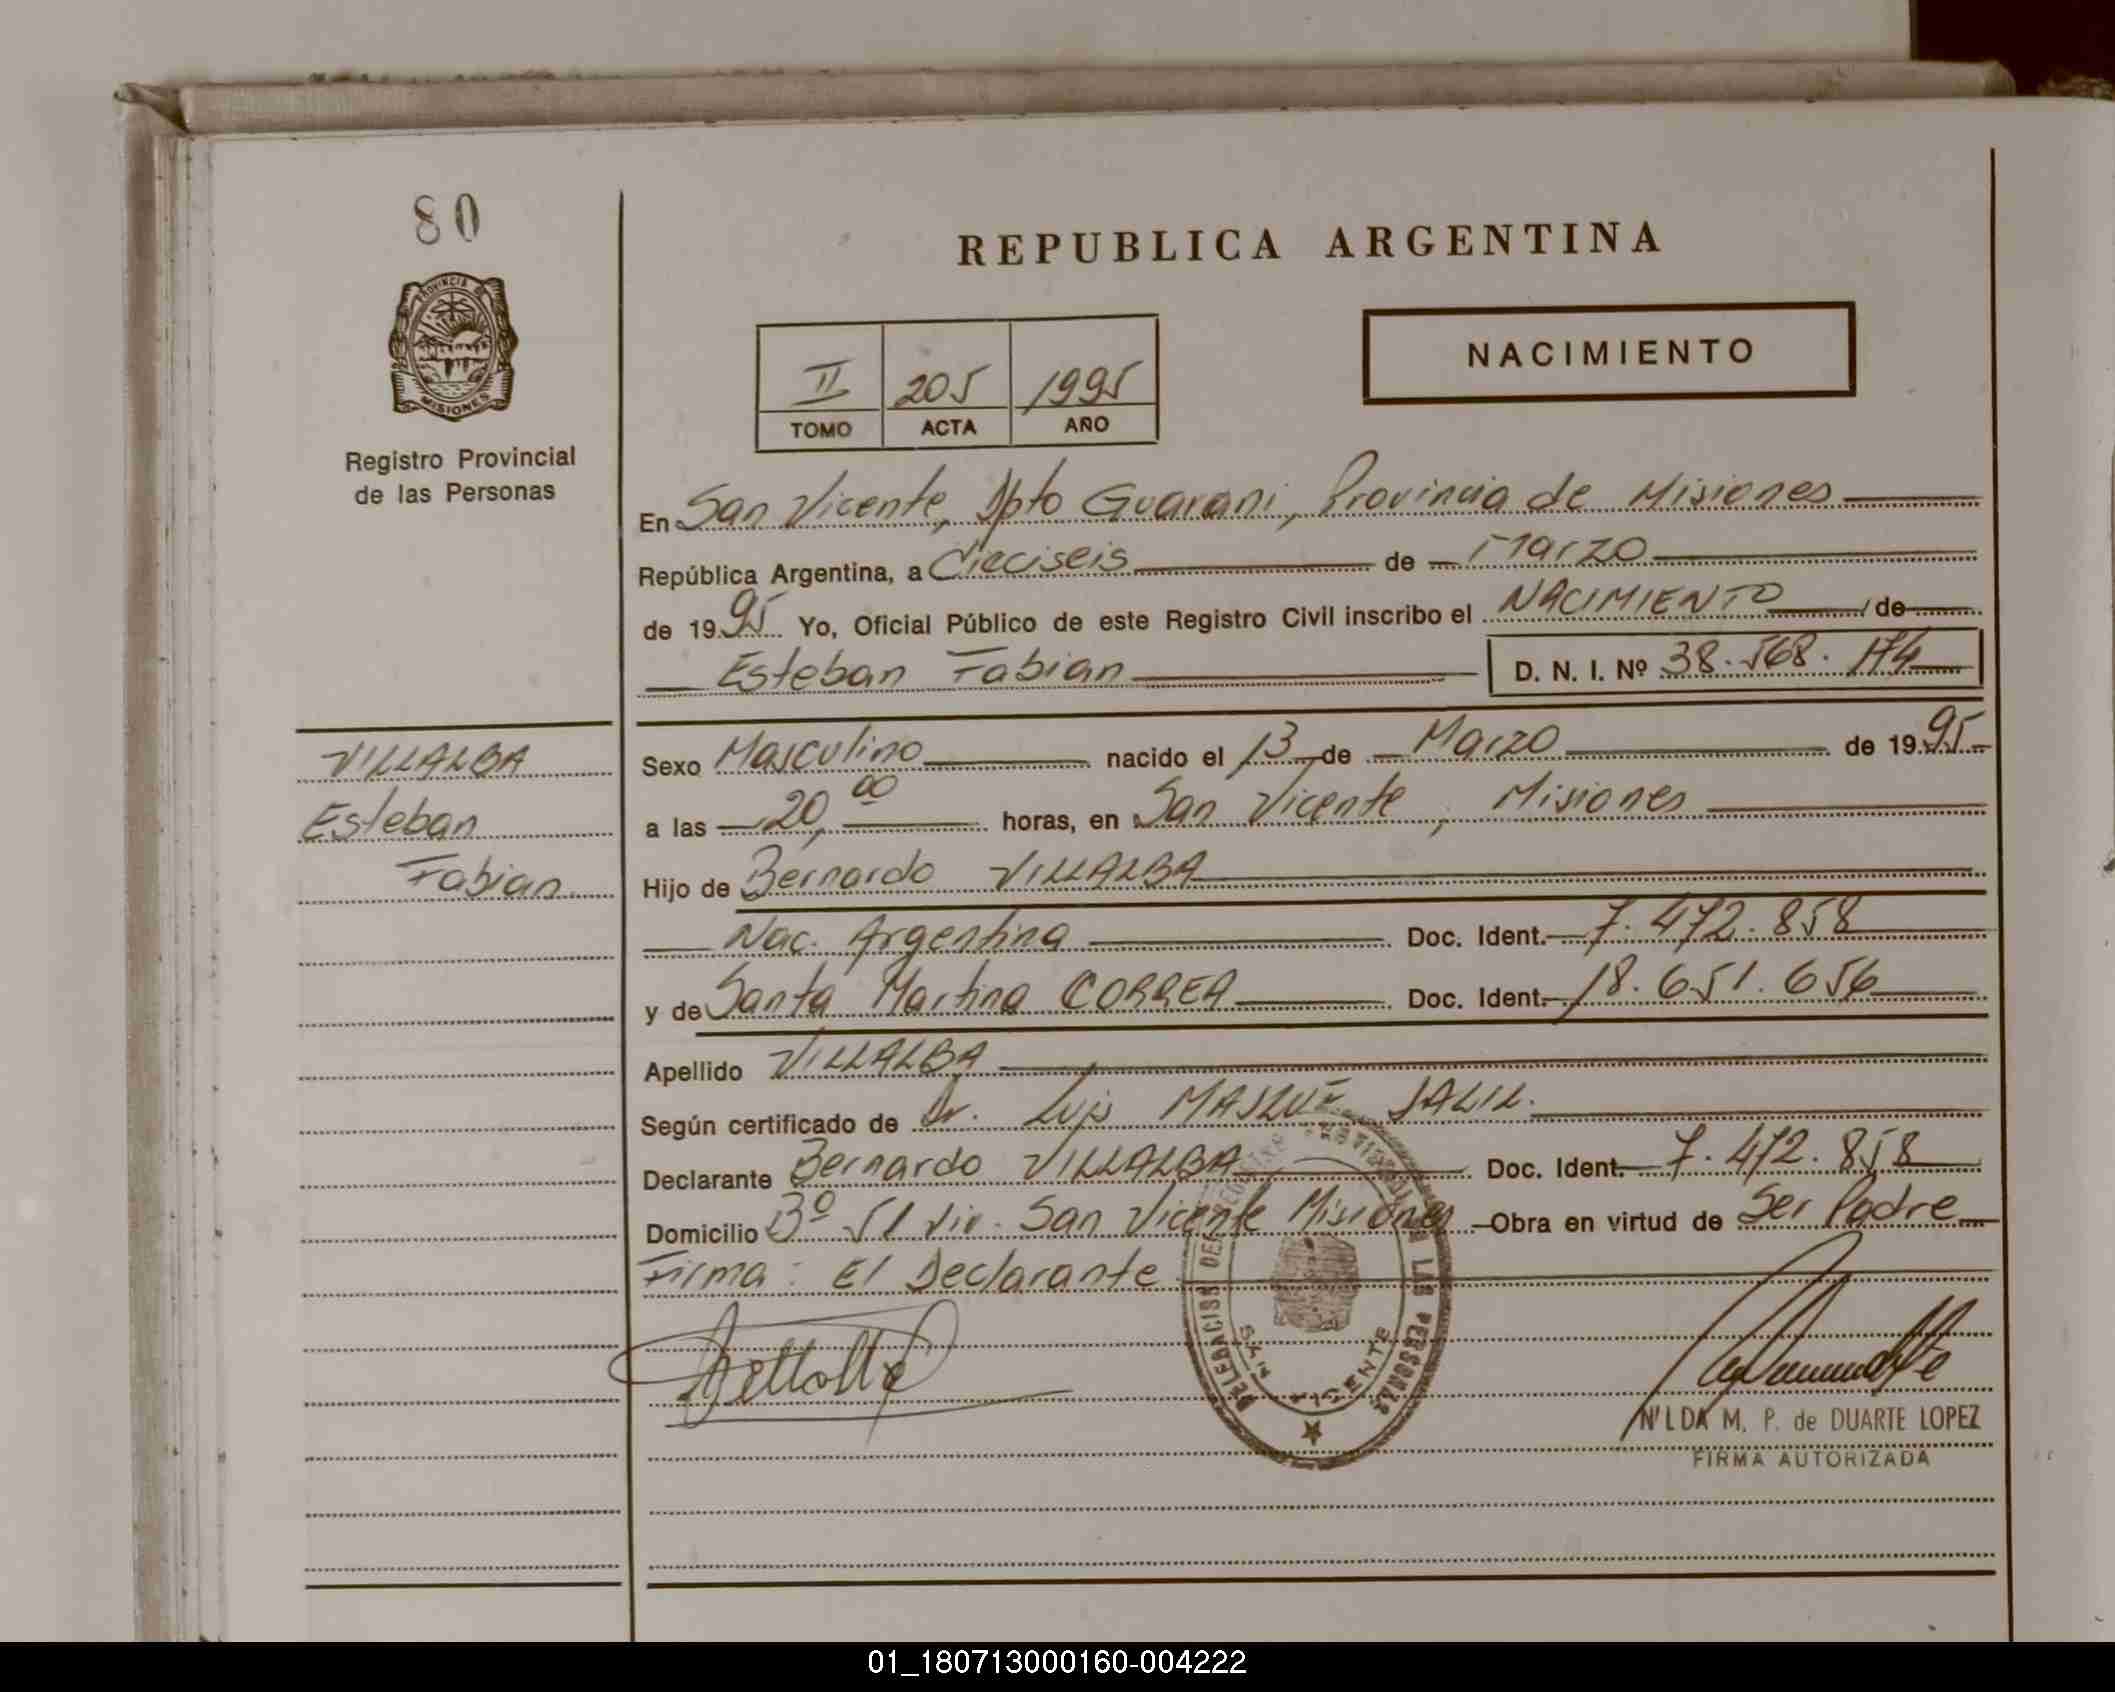 80
PROVINCIA DE
MISIONES
Registro Provincial
de las Personas
REPUBLICA ARGENTINA
II 205 1995
TOMO ACTA AÑO
NACIMIENTO
En San Vicente, Dpto Guarani, Provincia de Misiones
República Argentina, a Dieciseis de Marzo
de 1995 Yo, Oficial Público de este Registro Civil inscribo el NACIMIENTO de
Esteban Fabian D. N. I. Nº 38.568.174
VILLALBA
Esteban
Fabian
Sexo Masculino nacido el 13 de Marzo de 1995
a las 20,00 horas, en San Vicente, Misiones
Hijo de Bernardo VILLALBA
Nac. Argentina Doc. Ident. 7.472.858
y de Santa Martina CORREA Doc. Ident. 18.651.656
Apellido VILLALBA
Según certificado de Dr. Luis MASLUÉ JALIL.
Declarante Bernardo VILLALBA Doc. Ident. 7.472.858
Domicilio Bº 51 Viv. San Vicente Misiones Obra en virtud de Ser Padre
Firma: El Declarante
DELEGACION DEL REGISTRO PROVINCIAL DE LAS PERSONAS
SAN VICENTE
NILDA M. P. de DUARTE LOPEZ
FIRMA AUTORIZADA
01_180713000160-004222